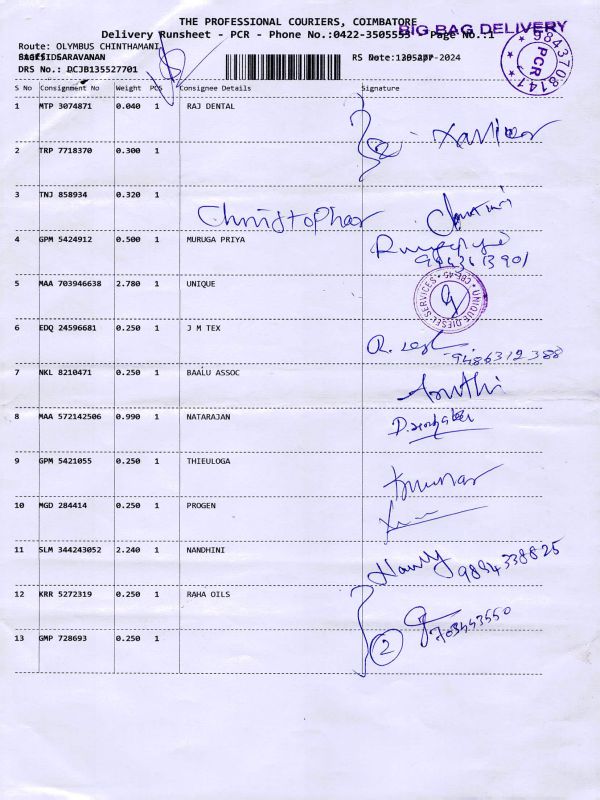 THE PROFESSIONAL COURIERS, COIMBATORE
BIG BAG DELIVERY
Delivery Runsheet - PCR - Phone No.:0422-3505555 - Page No.:1
Route: OLYMPUS CHINTHAMANI
SARAVANAN
DRS No.: DCJB135527701
9843708147 PCR
S No Consignment No Weight PCS Consignee Details Signature
1 MTP 3074871 0.040 1 RAJ DENTAL
2 TRP 7718370 0.300 1
3 TNJ 858934 0.320 1
Christophar
4 GPM 5424912 0.500 1 MURUGA PRIYA
5 MAA 703946638 2.780 1 UNIQUE
UNIQUE DIESEL SERVICES CBE-45
6 EDQ 24596681 0.250 1 J M TEX
9486312388
7 NKL 8210471 0.250 1 BAALU ASSOC
8 MAA 572142506 0.990 1 NATARAJAN
9 GPM 5421055 0.250 1 THIEULOGA
Kumar
10 MGD 284414 0.250 1 PROGEN
11 SLM 344243052 2.240 1 NANDHINI
9894338825
12 KRR 5272319 0.250 1 RAHA OILS
2
13 GMP 728693 0.250 1